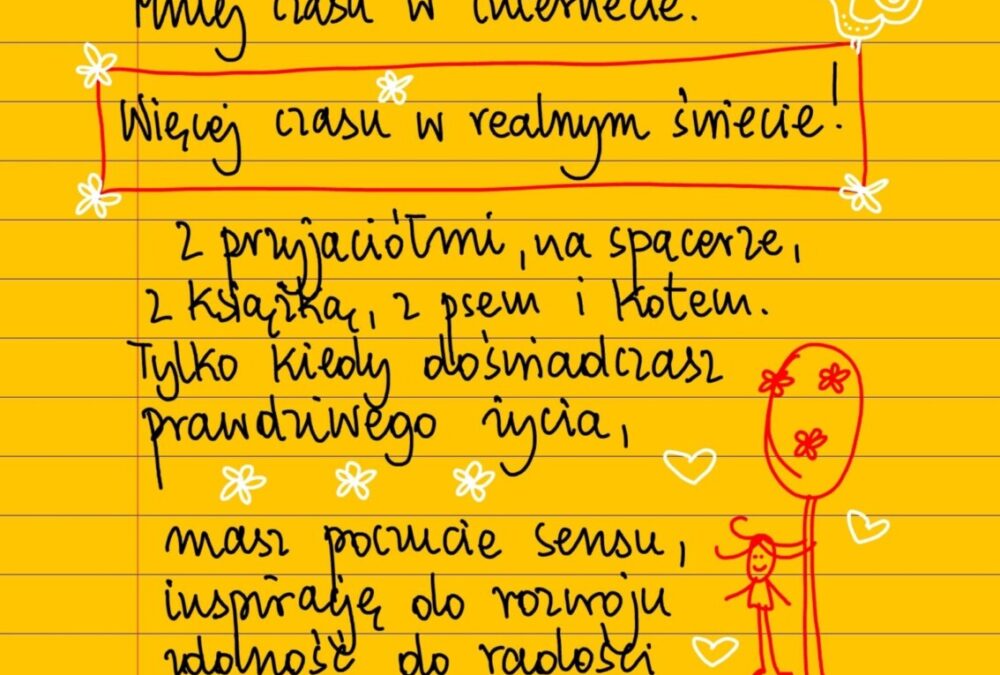 Mniej czasu w internecie.
Więcej czasu w realnym świecie!
z przyjaciółmi, na spacerze,
z książką, z psem i kotem.
Tylko kiedy doświadczasz
prawdziwego życia,
masz poczucie sensu,
inspirację do rozwoju
zdolność do radości